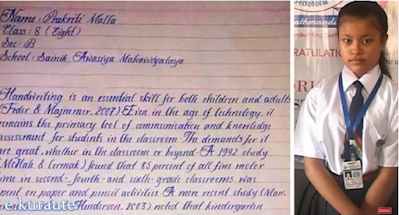 Name: Prakriti Malla
Class: 8 (Eight)
Sec: B
School: Sainik Awasiya Mahavidyalaya
Handwriting is an essential skill for both children and adults
(Feder & Majnemer, 2007) Even in the age of technology, it
remains the primary tool of communication and knowledge
assessment for students in the classroom. The demands for it
are great, whether in the classroom or beyond. A 1992 study
(McHale & Cermak) found that 85 percent of all fine motor
time in second-, fourth- and sixth-grade classrooms was
spent on paper and pencil activities. A more recent study (Marr,
Henderson, 2003) noted that kindergarten
e.kuraute
athmandu
Handwriting
RATULATI